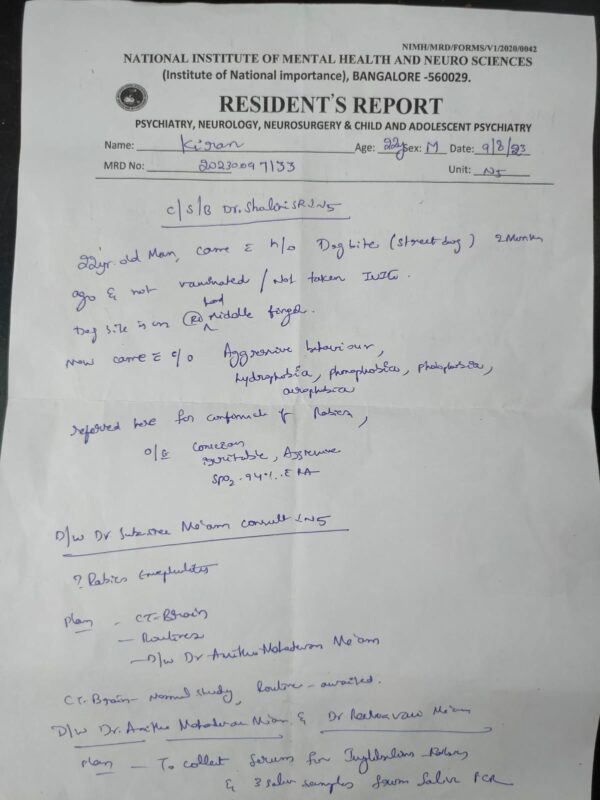 NIMH/MRD/FORMS/V1/2020/0042
NATIONAL INSTITUTE OF MENTAL HEALTH AND NEURO SCIENCES
(Institute of National importance), BANGALORE -560029.
RESIDENT'S REPORT
PSYCHIATRY, NEUROLOGY, NEUROSURGERY & CHILD AND ADOLESCENT PSYCHIATRY
Name: Kiran Age: 22y Sex: M Date: 9/8/23
MRD No: 20230097133 Unit: N5
C/S/B Dr. Shalini SR N5
22yr. old Man, came c̄ h/o Dog bite (street dog) 2 Months
ago & not vaccinated / Not taken IVIG.
Dog bite is on (Rt) hand Middle finger.
Now came c̄ c/o Aggressive behaviour,
hydrophobia, phonophobia, photophobia,
aerophobia
referred here for of Rabies,
O/E Conscious
irritable, Aggressive
SPO2 - 94% c̄ RA
D/W Dr Ma'am consult N5
? Rabies Encephalitis
Plan - CT-Brain
- Routines
- D/W Dr Anitha Mahadevan Ma'am
CT-Brain - Normal study, Routine - awaited.
D/W Dr. Anitha Mahadevan Mam & Dr Ma'am
Plan - To collect Serum for - Rabies
& 3 saliva samples Saliva PCR